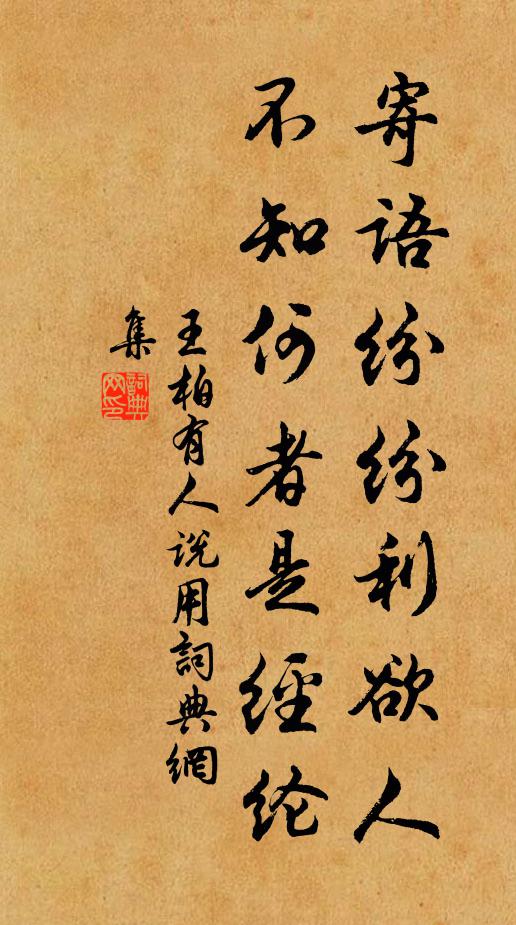 寄语纷纷利欲人
不知何者是經纶
王柏有人说用詞典網
集
詞典
网印